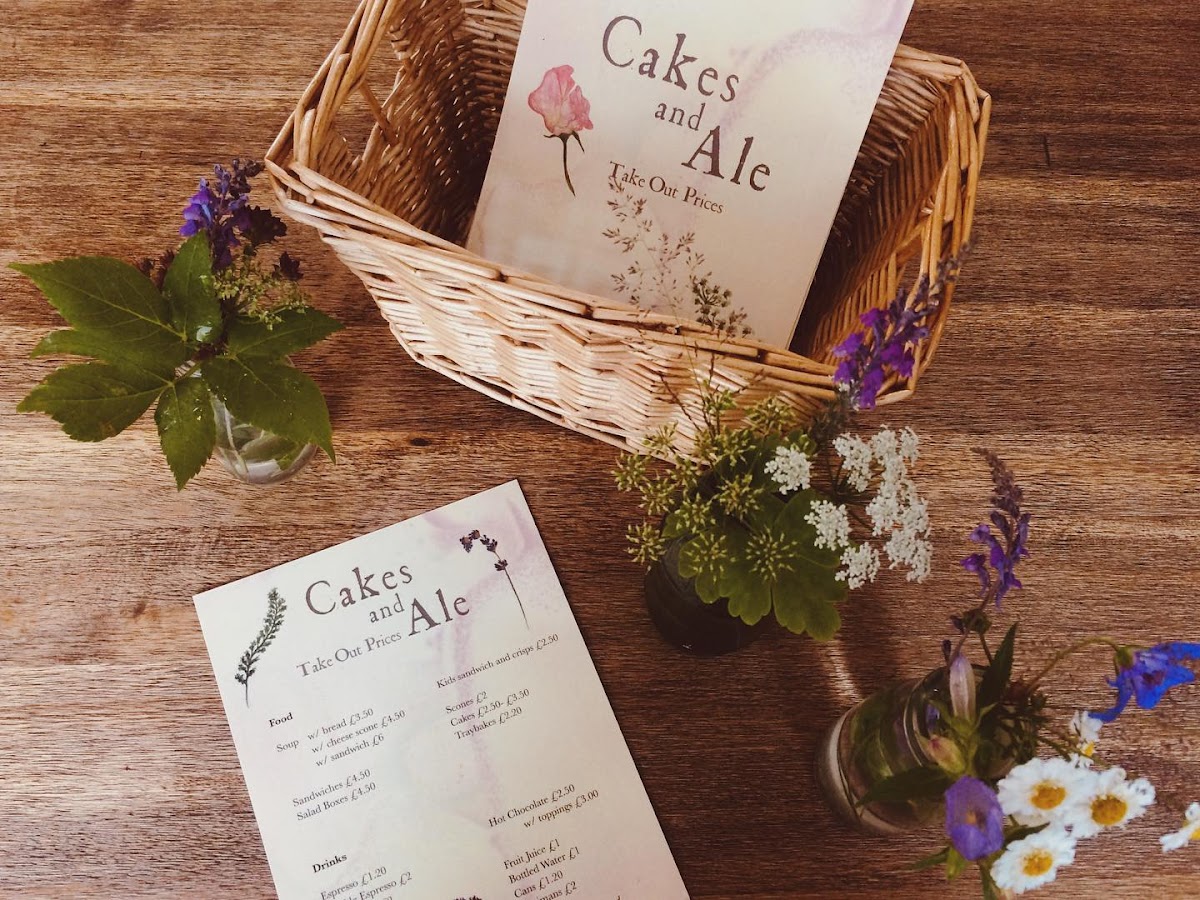 Cakes
and
Ale
Take Out Prices
Cakes
and
Ale
Take Out Prices
Food
Soup w/ bread £3.50
w/ cheese scone £4.50
w/ sandwich £6
Sandwiches £4.50
Salad Boxes £4.50
Kids sandwich and crisps £2.50
Scones £2
Cakes £2.50- £3.50
Traybakes £2.20
Drinks
Espresso £1.20
Espresso £2
Hot Chocolate £2.50
w/ toppings £3.00
Fruit Juice £1
Bottled Water £1
Cans £1.20
£2